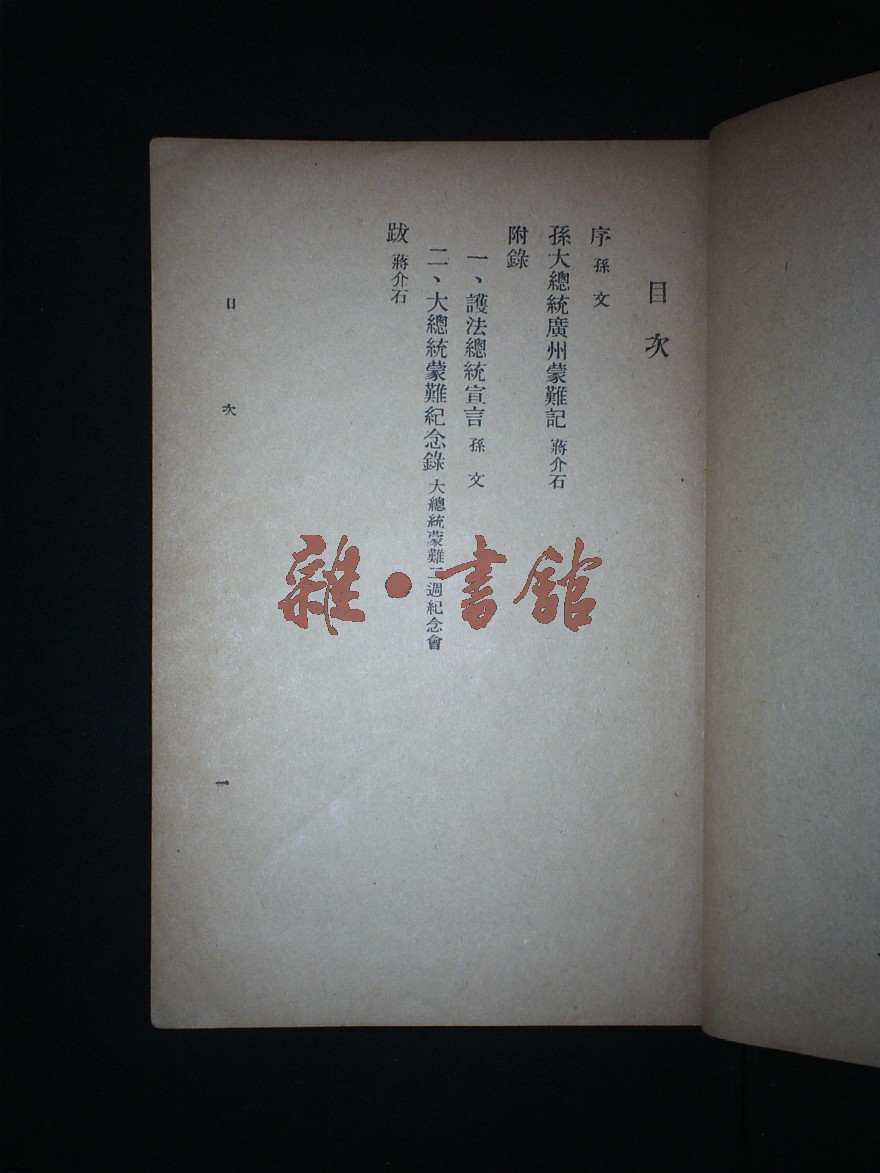 目次
序 孫文
孫大總統廣州蒙難記 蔣介石
附錄
一、護法總統宣言 孫文
二、大總統蒙難紀念錄 大總統蒙難二週紀念會
跋 蔣介石
目次
一
雜·書館